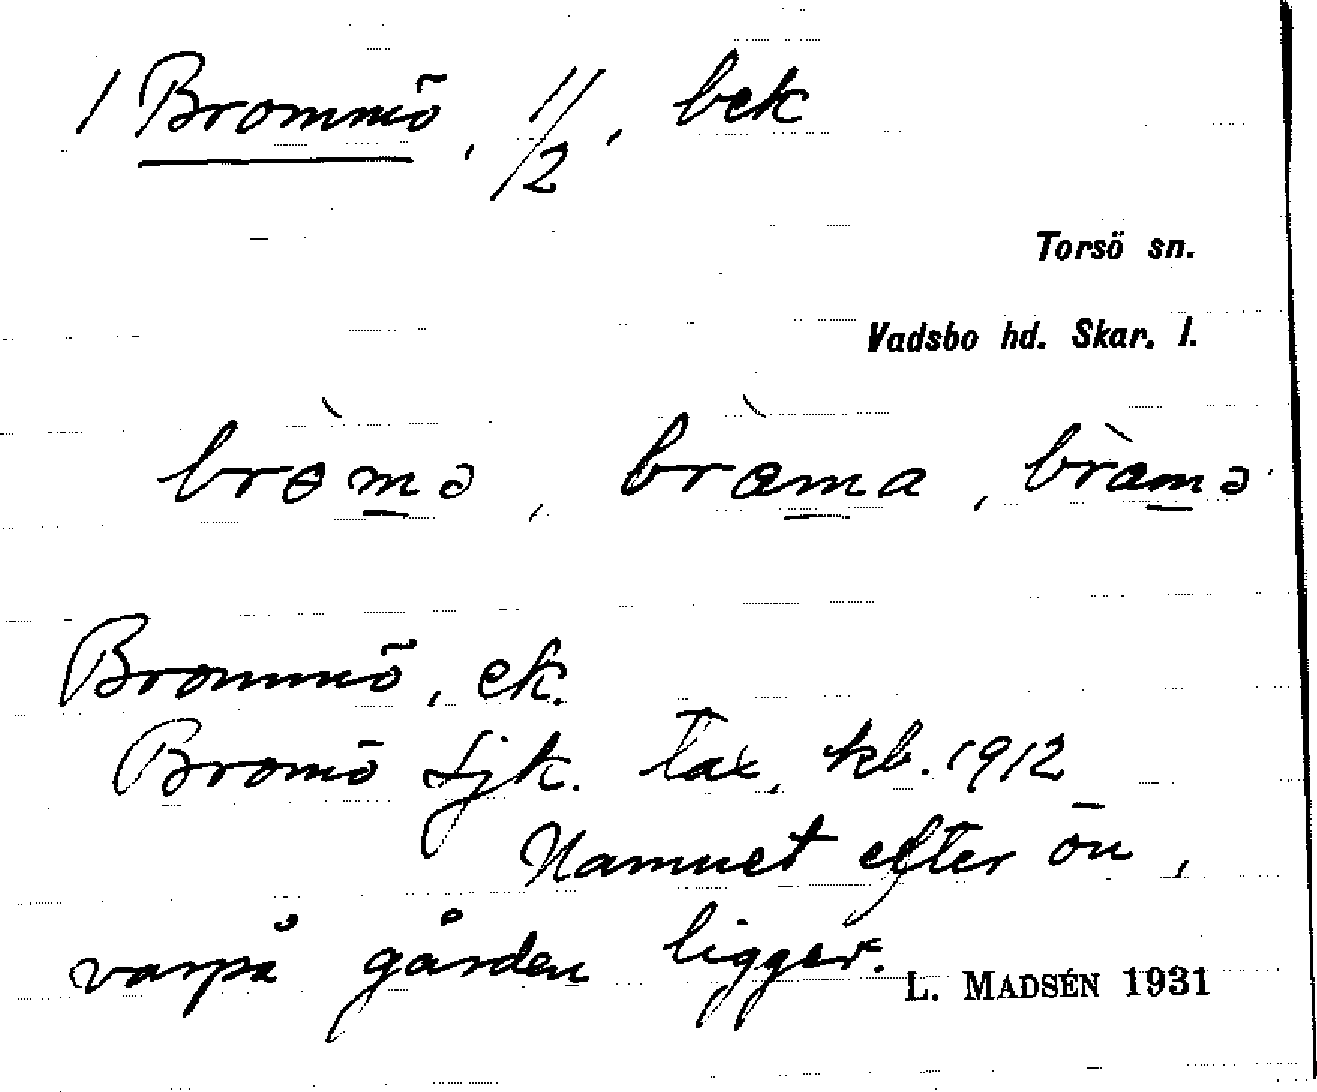 1 Brommö, 1 1/2, bek
Torsö sn.
Vadsbo hd. Skar. l.
brɵ̀mə, bræ̀ma, bræ̀mə
Brommö, ek.
Bromö Sjk. Tax. kb. 1912
Namnet efter ön,
varpå gården ligger.
L. MADSÉN 1931